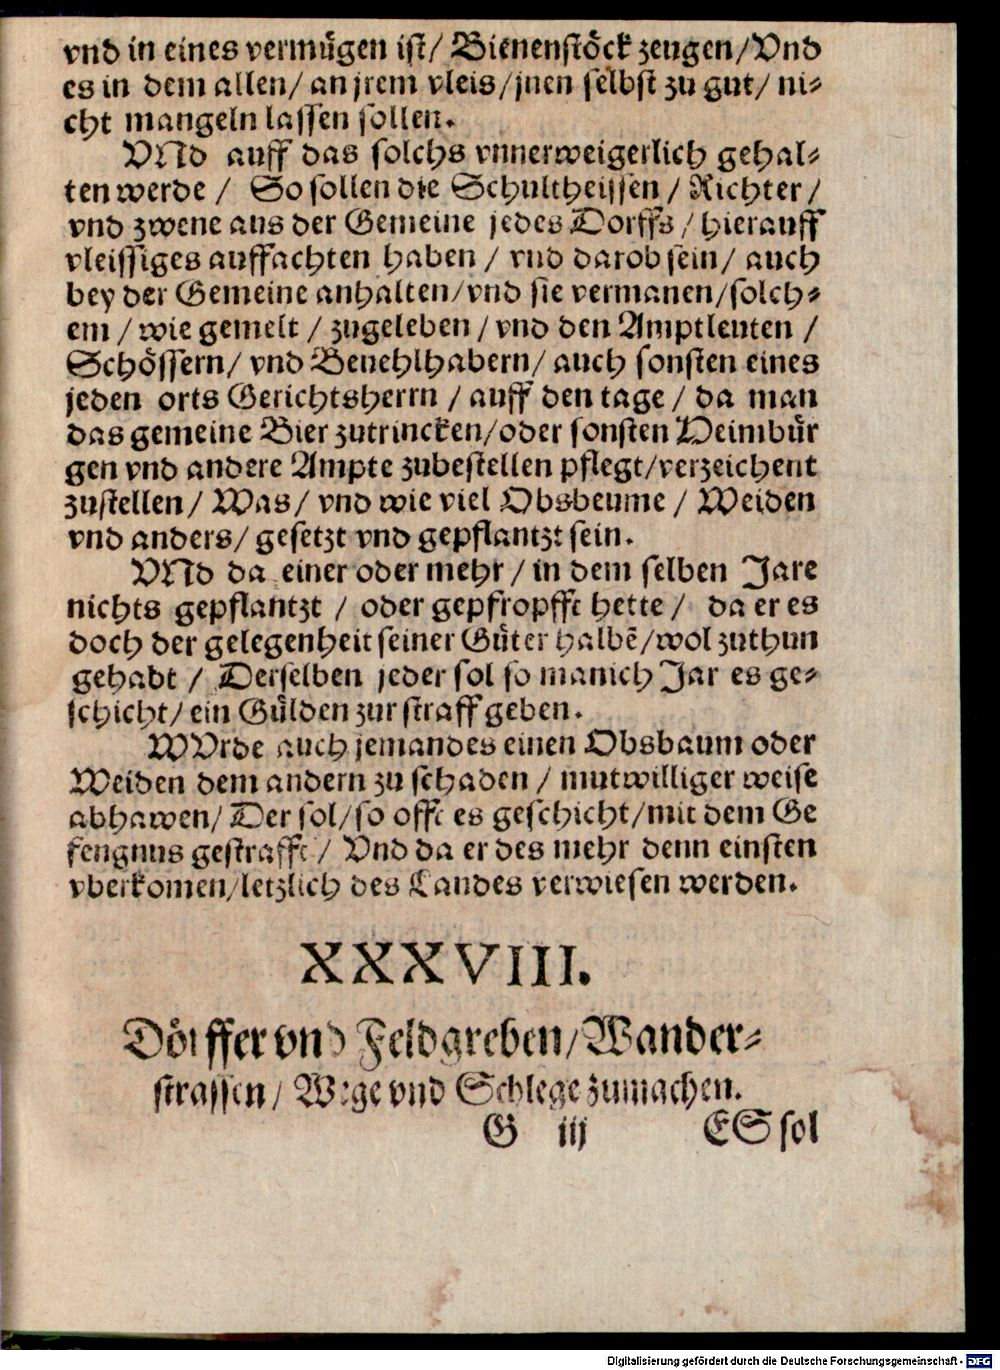 vnd in eines vermügen ist/ Bienenstöck zeugen/Vnd
es in dem allen/ an jrem vleis/jnen selbst zu gut/ ni⸗
cht mangeln lassen sollen.
VNd auff das solchs vnnerweigerlich gehal⸗
ten werde / So sollen die Schultheissen / Richter /
vnd zwene aus der Gemeine jedes Dorffs / hierauff
vleissiges auffachten haben / vnd darob sein/ auch
bey der Gemeine anhalten/vnd sie vermanen/solch⸗
em / wie gemelt / zugeleben / vnd den Amptleuten /
Schössern/ vnd Benehlhabern/ auch sonsten eines
jeden orts Gerichtsherrn / auff den tage / da man
das gemeine Bier zutrincken/oder sonsten Heimbür
gen vnd andere Ampte zubestellen pflegt/verzeichent
zustellen / Was/ vnd wie viel Obsbeume / Weiden
vnd anders/ gesetzt vnd gepflantzt sein.
VNd da einer oder mehr / in dem selben Jare
nichts gepflantzt / oder gepfropfft hette / da er es
doch der gelegenheit seiner Güter halbē/wol zuthun
gehabt / Derselben jeder sol so manich Jar es ge⸗
schicht/ ein Gülden zur straff geben.
WVrde auch jemandes einen Obsbaum oder
Weiden dem andern zu schaden / mutwilliger weise
abhawen/ Der sol/so offt es geschicht/mit dem Ge
fengnus gestrafft / Vnd da er des mehr denn einsten
vberkomen/letzlich des Landes verwiesen werden.
XXXVIII.
Dörffer vnd Feldgreben/Wander⸗
strassen/ Wege vnd Schlege zumachen.
G iij ES sol
Digitalisierung gefördert durch die Deutsche Forschungsgemeinschaft - DFG